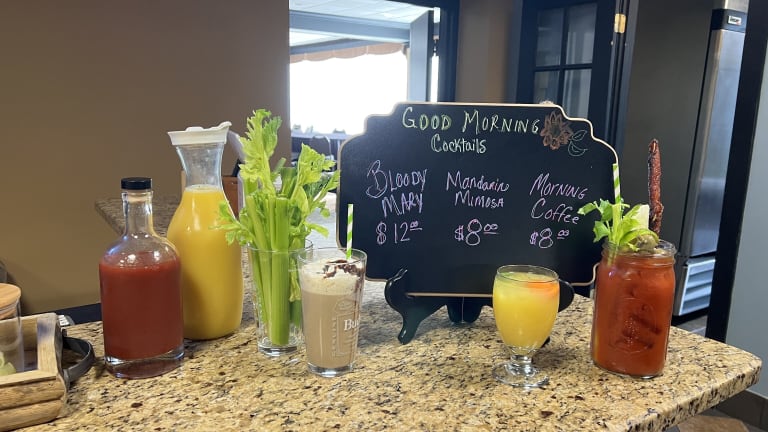 GOOD MORNING
Cocktails
BLOODY
MARY
$12.00
MANDARINE
MIMOSA
$8.00
MORNING
COFFEE
$8.00